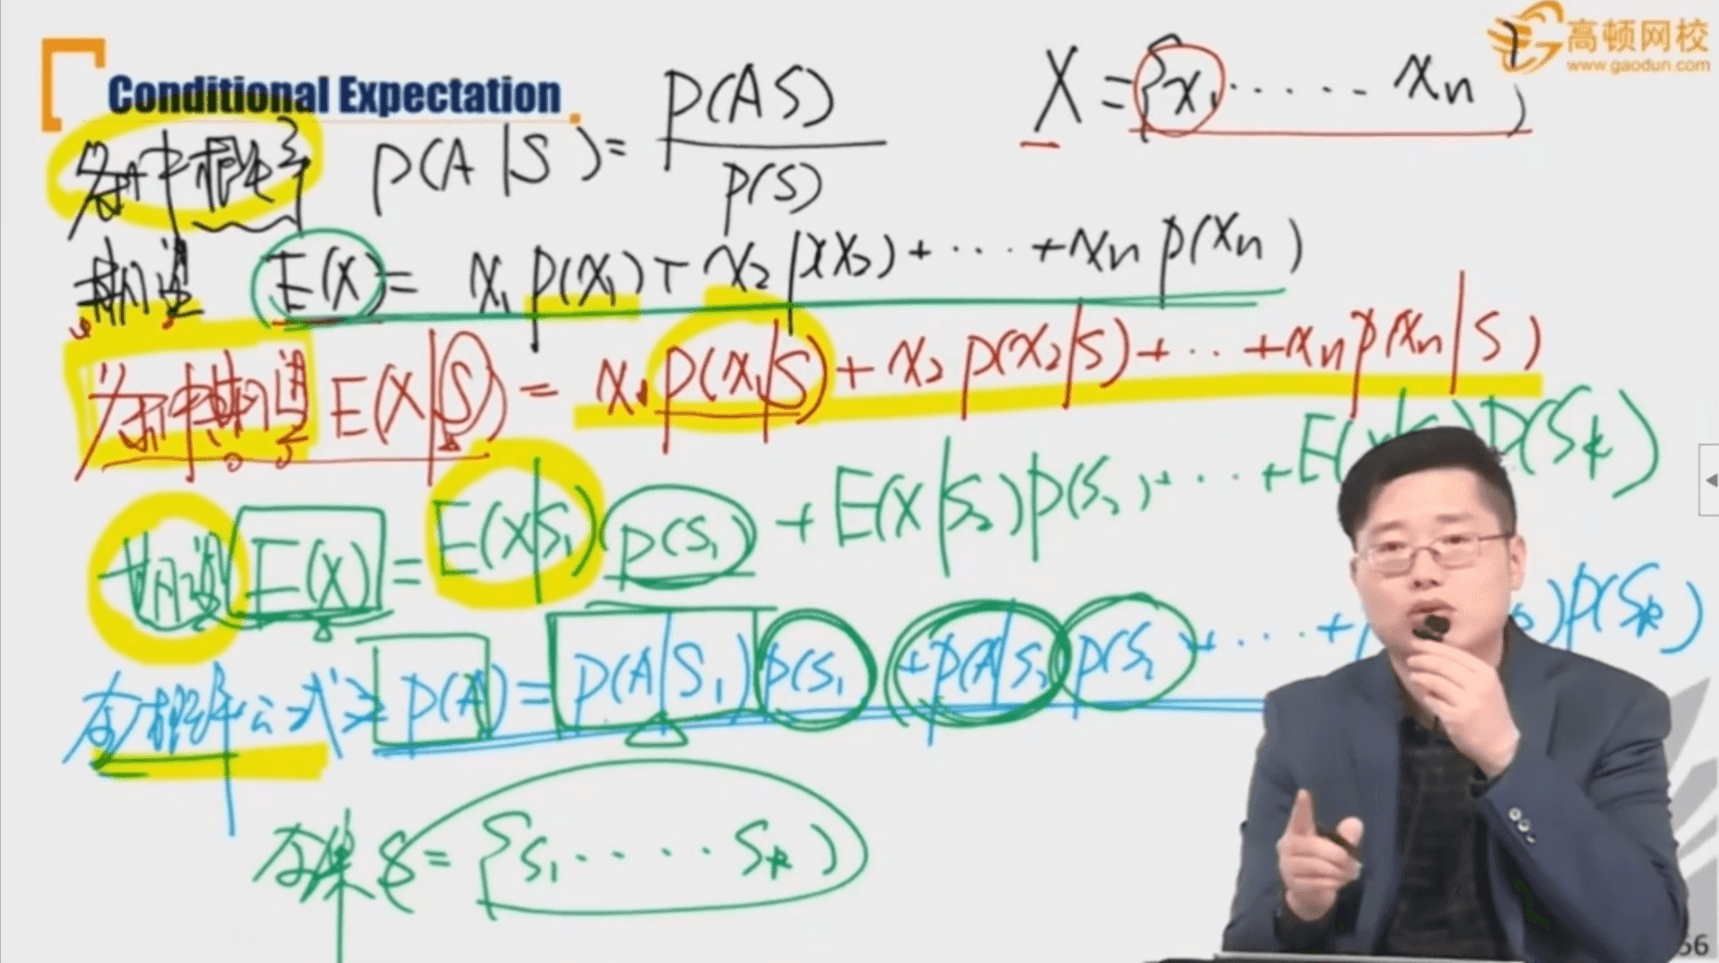 高顿网校
www.gaodun.com
Conditional Expectation
X = {x₁ ...... xₙ}
条件概率 P(A|S) = P(AS) / P(S)
期望 E(X) = x₁P(x₁) + x₂P(x₂) + ... + xₙP(xₙ)
条件期望 E(X|S) = x₁P(x₁|S) + x₂P(x₂|S) + ... + xₙP(xₙ|S)
期望 E(X) = E(X|S₁)P(S₁) + E(X|S₂)P(S₂) + ... + E( P(Sₖ)
全概率公式: P(A) = P(A|S₁)P(S₁ + P(A|S₂ P(S₂ + ... + )P(Sₖ)
全集 S = {S₁ ..... Sₖ}
56